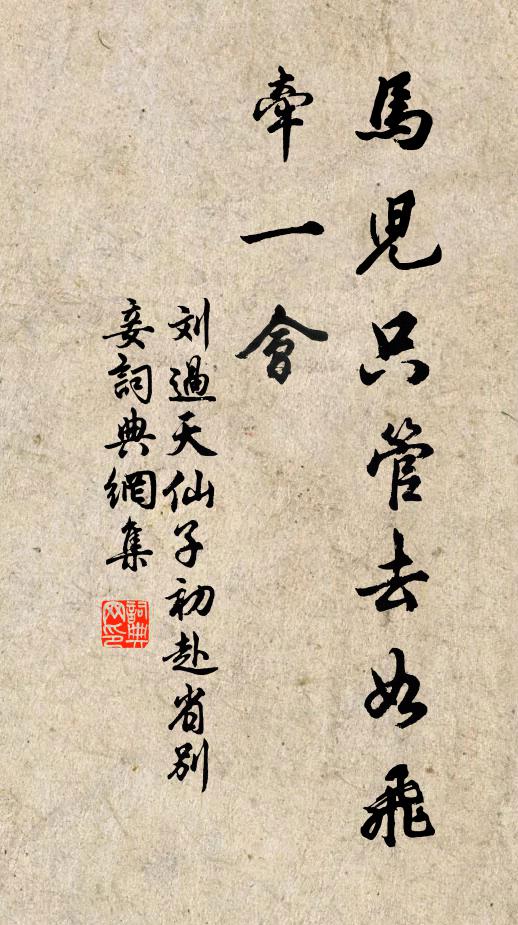 馬児只管去如飛
牽一會
刘過天仙子初赴省别
妾詞典網集
詞典
网印